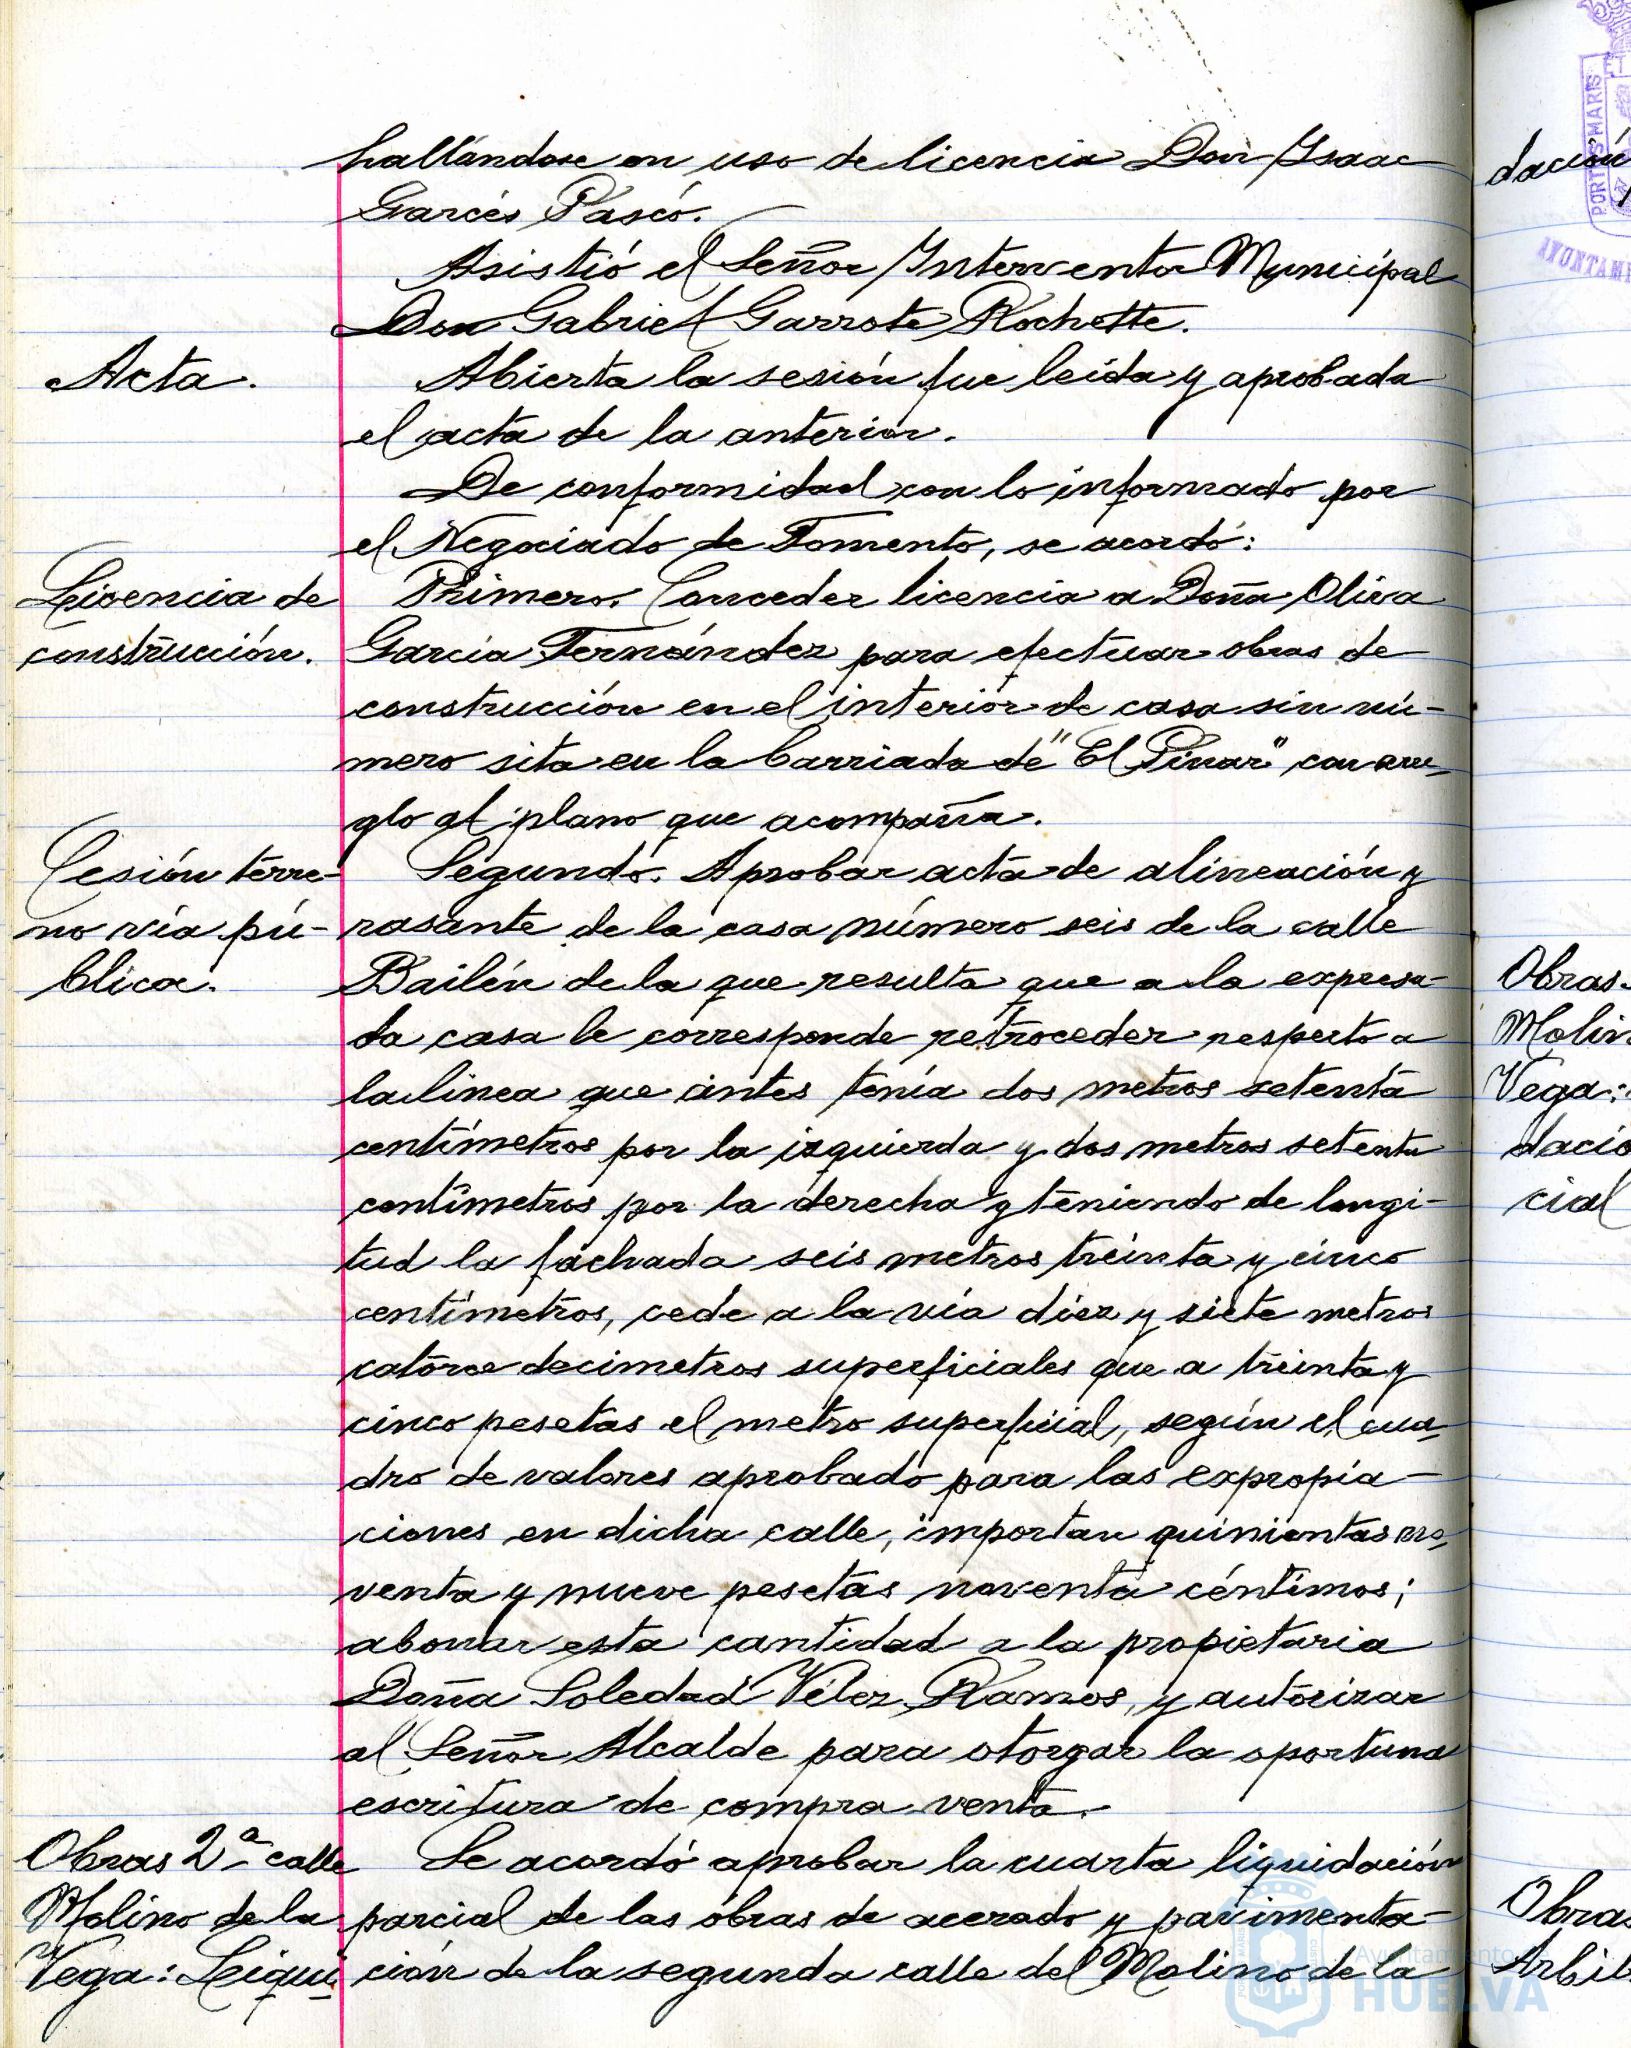 hallándose en uso de licencia Don Isaac
Garcés Pascó.
Asistió el Señor Interventor Municipal
Don Gabriel Garrote Rochette.
Acta.
Abierta la sesión fue leída y aprobada
el acta de la anterior.
De conformidad con lo informado por
el Negociado de Fomento, se acordó:
Licencia de
construcción.
Primero. Conceder licencia a Doña Oliva
García Fernández para efectuar obras de
construcción en el interior de casa sin nú-
mero sita en la barriada de "El Pinar" con arre-
glo al plano que acompaña.
Cesión terre-
no vía pú-
blica.
Segundo. Aprobar acta de alineación y
rasante de la casa número seis de la calle
Bailén de la que resulta que a la expresa-
da casa le corresponde retroceder respecto a
la línea que antes tenía dos metros setenta
centímetros por la izquierda y dos metros setenta
centímetros por la derecha y teniendo de longi-
tud la fachada seis metros treinta y cinco
centímetros, cede a la vía diez y siete metros
catorce decímetros superficiales que a treinta y
cinco pesetas el metro superficial, según el cua-
dro de valores aprobado para las expropia-
ciones en dicha calle, importan quinientas no-
venta y nueve pesetas noventa céntimos;
abonar esta cantidad a la propietaria
Doña Soledad Vélez Ramos, y autorizar
al Señor Alcalde para otorgar la oportuna
escritura de compra venta.
Obras 2ª calle
Molino de la
Vega: Liqui-
Se acordó aprobar la cuarta liquidación
parcial de las obras de acerado y pavimenta-
ción de la segunda calle del Molino de la
dación
PORTUS MARIS
AYUNTAMI
Obras
Molin
Vega:
dació
cial
Obras
Arbit
Ayuntamiento de
HUELVA